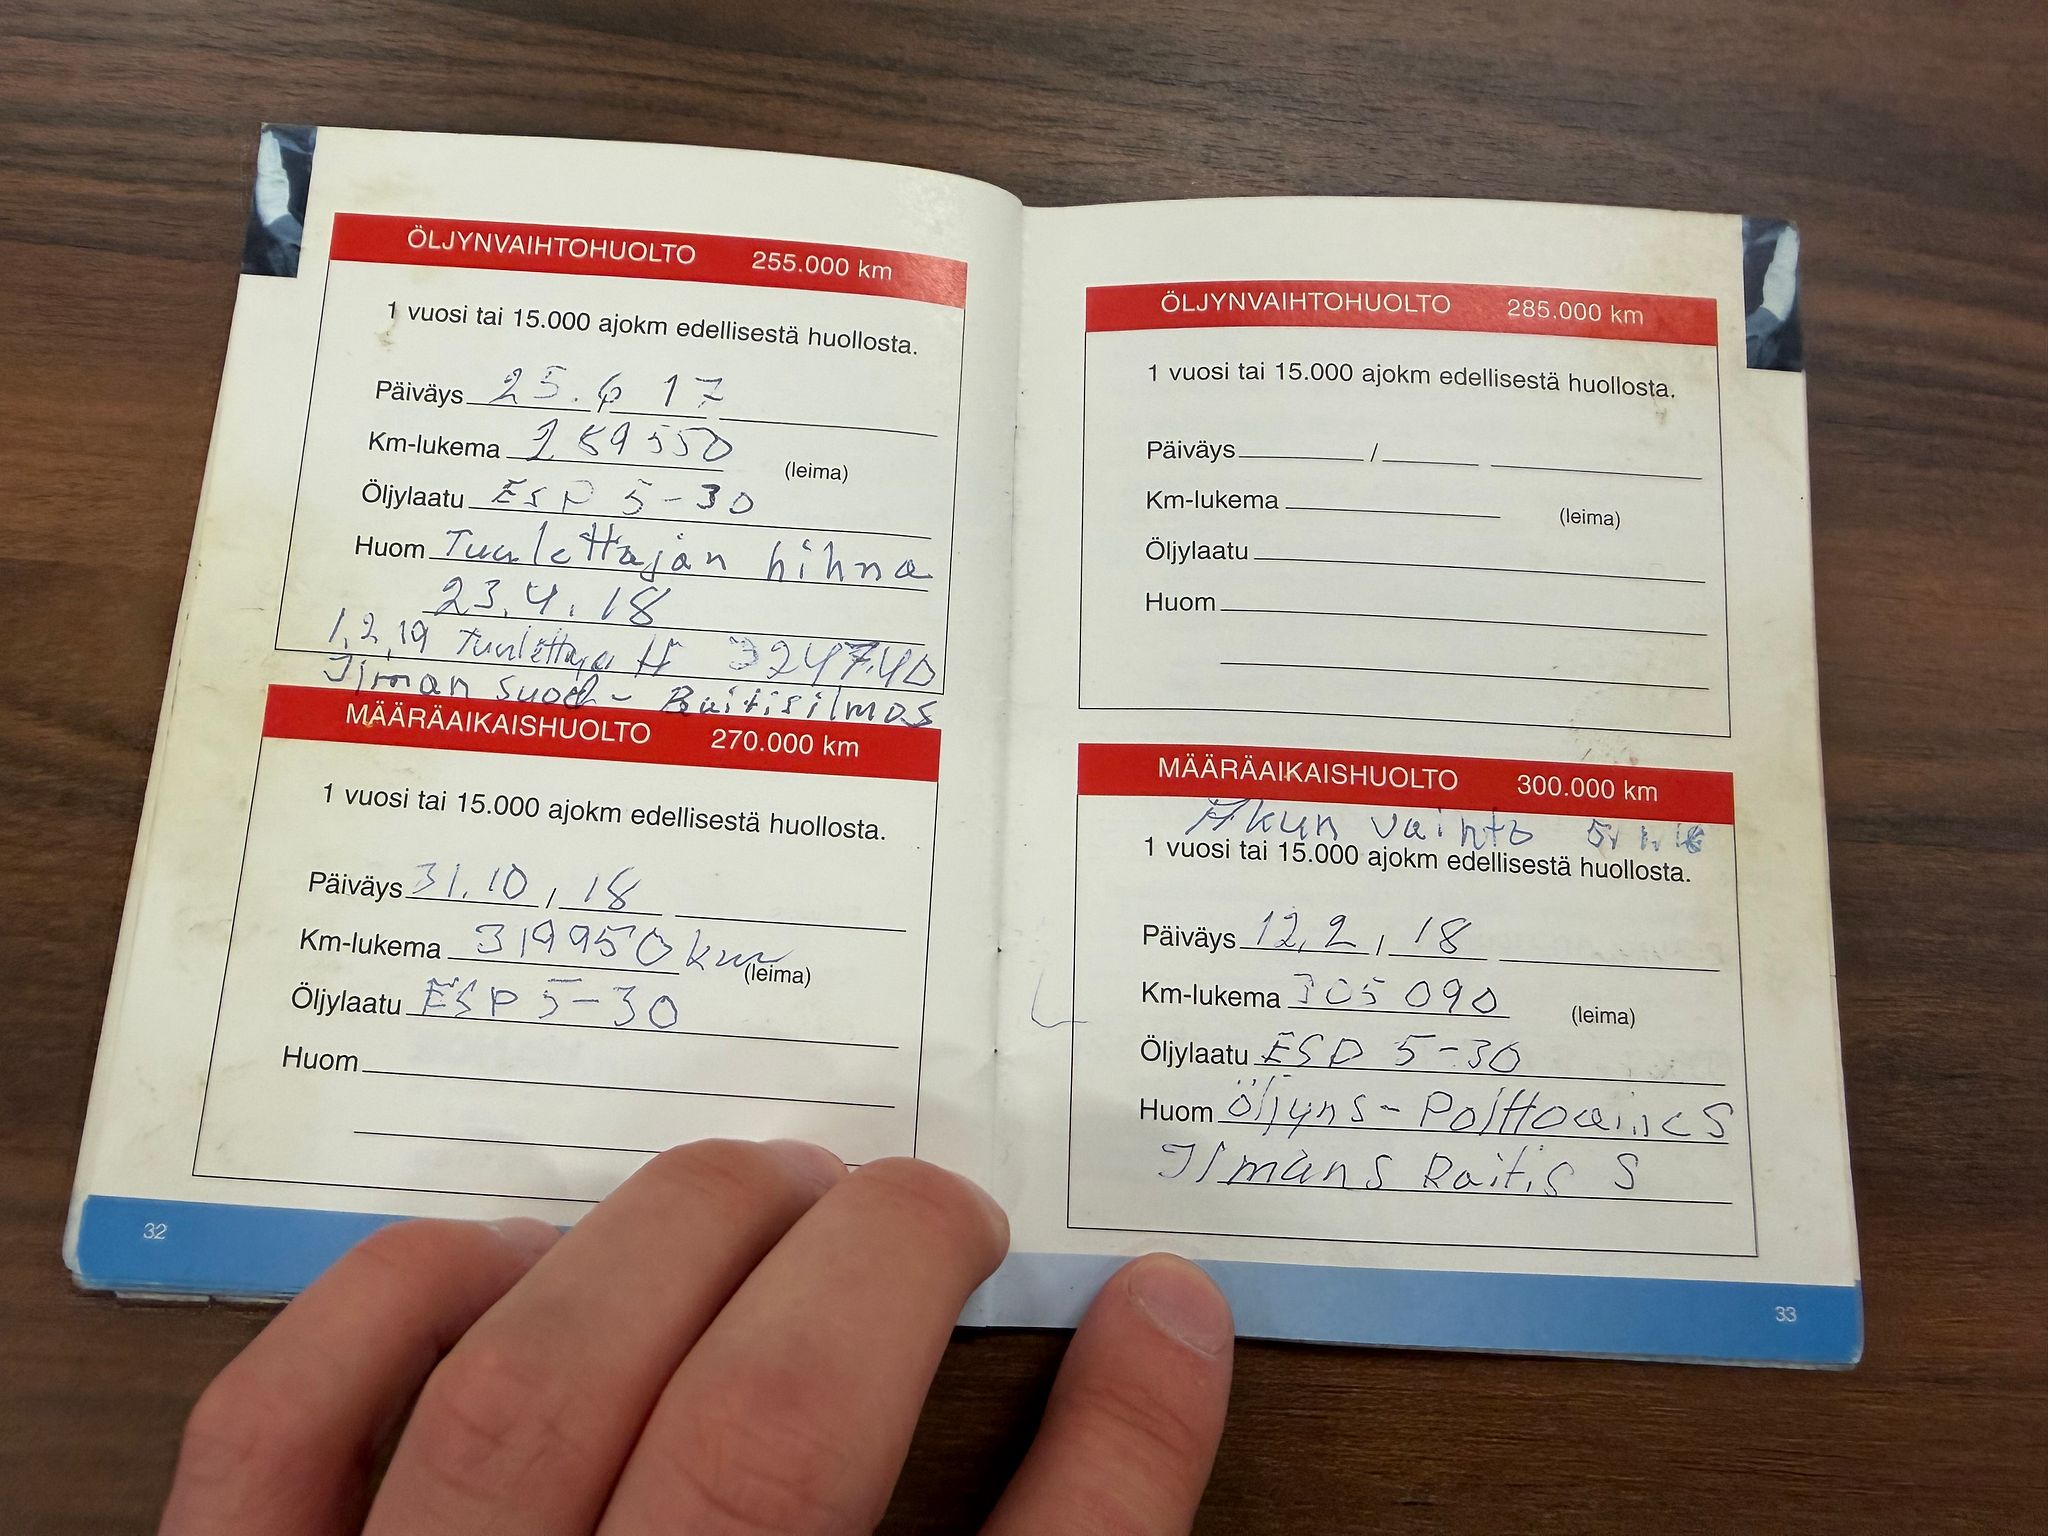 ÖLJYNVAIHTOHUOLTO 255.000 km
1 vuosi tai 15.000 ajokm edellisestä huollosta.
Päiväys 25.6 17
Km-lukema 289550
(leima)
Öljylaatu ESP 5-30
Huom Tuulettajan hihna
23.4.18
1.2.19 Tuulettaja H 324740
Ilman suod - Raitisilmas
MÄÄRÄAIKAISHUOLTO 270.000 km
1 vuosi tai 15.000 ajokm edellisestä huollosta.
Päiväys 31.10 / 18
Km-lukema 319950 km
(leima)
Öljylaatu ESP 5-30
Huom
32
ÖLJYNVAIHTOHUOLTO 285.000 km
1 vuosi tai 15.000 ajokm edellisestä huollosta.
Päiväys /
Km-lukema
(leima)
Öljylaatu
Huom
MÄÄRÄAIKAISHUOLTO 300.000 km
Akun vaihto
1 vuosi tai 15.000 ajokm edellisestä huollosta.
Päiväys 12.2 / 18
Km-lukema 305090
(leima)
Öljylaatu ESP 5-30
Huom Öljyns - Polttoaines
Ilmans Raitis S
33